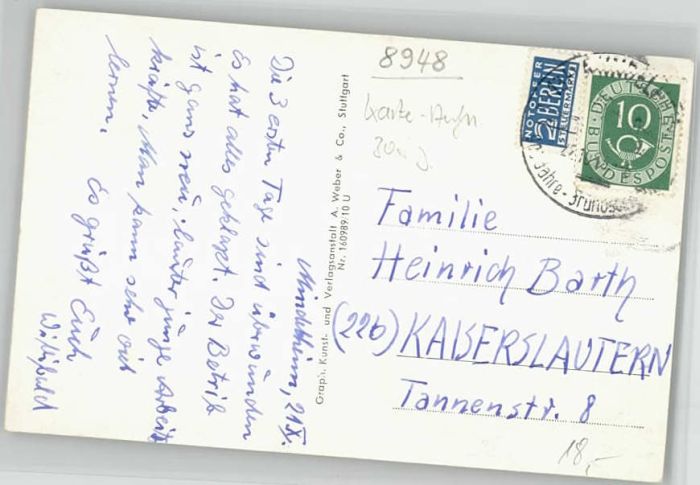 Mindelheim, 21.IX.
Die 3 ersten Tage sind überwunden
Es hat alles geklappt. Der Betrieb
ist ganz neu, lauter junge Arbeits
kräfte. Man kann sehr viel
lernen.
Es grüßt Euch
Willibald
Graph. Kunst- und Verlagsanstalt A. Weber & Co., Stuttgart
Nr. 160989/10 U
8948
Karte
30ig J.
NOTOPFER
2 BERLIN
STEUERMARKE
DEUTSCHE
10
BUNDESPOST
Jahre
Familie
Heinrich Barth
(22b) KAISERSLAUTERN
Tannenstr. 8
18,-